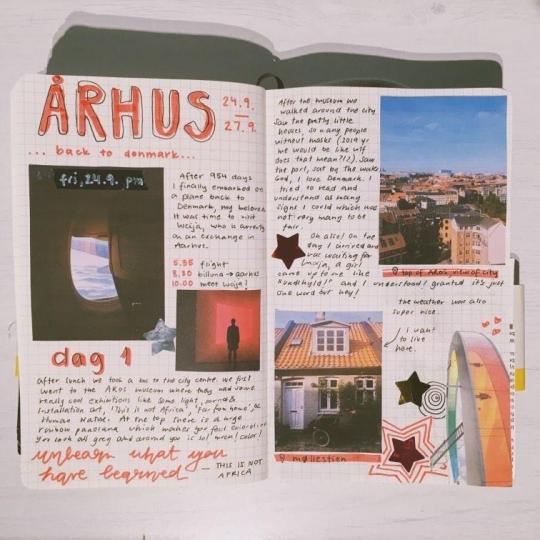 ÅRHUS
24.9.
—
27.9.
... back to denmark...
fri, 24.9. pm
After 954 days
I finally embarked on
a plane back to
Denmark, my beloved.
It was time to visit
Weija, who is currently
on an exchange in
Aarhus.
5.35 flight
8.30 billund → aarhus
10.00 meet Weija!
dag 1
After lunch we took a bus to the city centre. We first
went to the ARoS museum where they had some
really cool exhibitions like some light, sound &
installation art, 'This is not Africa', 'Far from home', &
Human Nature. At the top there is a large
rainbow panorama which makes you feel colorblind.
You look all grey and around you is so much color!
unlearn what you
have learned — THIS IS NOT
AFRICA
After the museum we
walked around the city
saw the pretty little
houses, so many people
without masks (2019 yr
me would be like wtf
does that mean?!?). Saw
the port, sat by the water.
God, I love Denmark. I
tried to read and
understand as many
signs I could which was
not very many to be
fair.
Oh also! On the
day I arrived and
was waiting for
Weija, a girl
came up to me like
"undskyld!" and I understood! granted it's just
one word but hey!
top of ARoS, view of city
the weather was also
super nice.
I want
to live
here.
møllestien